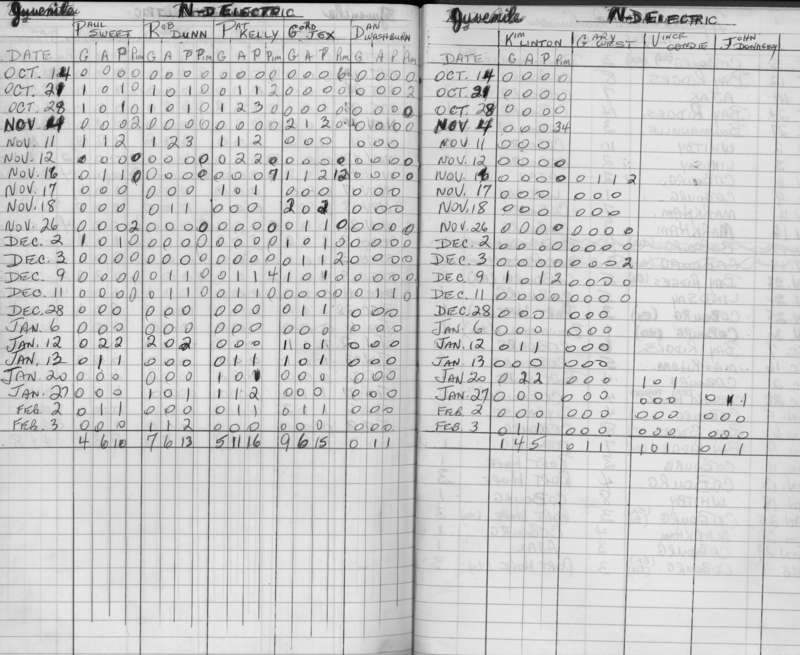 Juvenile N-D ELECTRIC
PAUL SWEET ROB DUNN PAT KELLY GORD JEX DAN WASHBURN
DATE G A P Pim G A P Pim G A P Pim G A P Pim G A P Pim
OCT. 14 0 0 0 0 0 0 0 0 0 0 0 0 0 0 0 6 0 0 0 0
OCT. 21 1 0 1 0 1 0 1 0 0 1 1 2 0 0 0 0 0 0 0 2
OCT. 28 1 0 1 0 1 0 1 0 1 2 3 0 0 0 0 0 0 0 0
NOV 4 0 0 0 2 0 0 0 0 0 0 0 0 2 1 3 0 0 0 0
NOV. 11 1 1 2 1 2 3 1 1 2 0 0 0 0 0 0
NOV. 12 0 0 0 0 0 0 0 0 0 2 2 0 0 0 0 0 0 0 0 0
NOV. 16 0 1 1 0 0 0 0 0 0 0 0 7 0 1 1 2 12 0 0 0 0
NOV. 17 0 0 0 0 0 0 1 0 1 0 0 0 0 0 0
NOV. 18 0 0 0 0 1 1 0 0 0 2 0 2 0 0 0
NOV. 26 0 0 0 2 0 0 0 0 0 0 0 0 0 1 1 0 0 0 0 0
DEC. 2 1 0 1 0 0 0 0 0 0 0 0 0 1 0 1 0 0 0 0 0
DEC. 3 0 0 0 0 0 0 0 0 0 0 0 0 0 1 1 2 0 0 0 0
DEC. 9 0 0 0 0 0 1 1 0 0 1 1 4 1 0 1 0 0 0 0 0
DEC. 11 0 0 0 0 0 1 1 0 0 1 1 0 0 0 0 0 0 1 1 0
DEC. 28 0 0 0 0 0 0 0 0 0 0 1 1 0 0 0
JAN. 6 0 0 0 0 0 0 0 0 0 0 0 0 0 0 0
JAN. 12 0 2 2 2 0 2 0 0 0 1 0 1 0 0 0
JAN. 13 0 1 1 0 0 0 0 1 1 1 0 1 0 0 0
JAN. 20 0 0 0 0 0 0 1 0 1 0 0 0 0 0 0
JAN. 27 0 0 0 1 0 1 1 1 2 0 0 0 0 0 0
FEB. 2 0 1 1 0 0 0 0 1 1 0 1 1 0 0 0
FEB. 3 0 0 0 1 1 2 0 0 0 0 0 0 0 0 0
4 6 10 7 6 13 5 11 16 9 6 15 0 1 1
Juvenile N-D ELECTRIC
KIM LINTON GARY WEST VINCE JOHN
DATE G A P Pim
OCT. 14 0 0 0 0
OCT. 21 0 0 0 0
OCT. 28 0 0 0 0
NOV. 4 0 0 0 34
NOV. 11 0 0 0
NOV. 12 0 0 0 0
NOV. 16 0 0 0 0 0 1 1 2
NOV. 17 0 0 0 0 0 0
NOV. 18 0 0 0 0 0 0
NOV. 26 0 0 0 0 0 0 0 0
DEC. 2 0 0 0 0 0 0 0 0
DEC. 3 0 0 0 0 0 0 0 2
DEC. 9 1 0 1 2 0 0 0 0
DEC. 11 0 0 0 0 0 0 0 0
DEC. 28 0 0 0 0 0 0
JAN. 6 0 0 0 0 0 0
JAN. 12 0 1 1 0 0 0
JAN. 13 0 0 0 0 0 0
JAN 20 0 2 2 0 0 0 1 0 1
JAN. 27 0 0 0 0 0 0 0 0 0 0 1 1
FEB. 2 0 0 0 0 0 0 0 0 0 0 0 0
FEB. 3 0 1 1 0 0 0 0 0 0 0 0 0
1 4 5 0 1 1 1 0 1 0 1 1